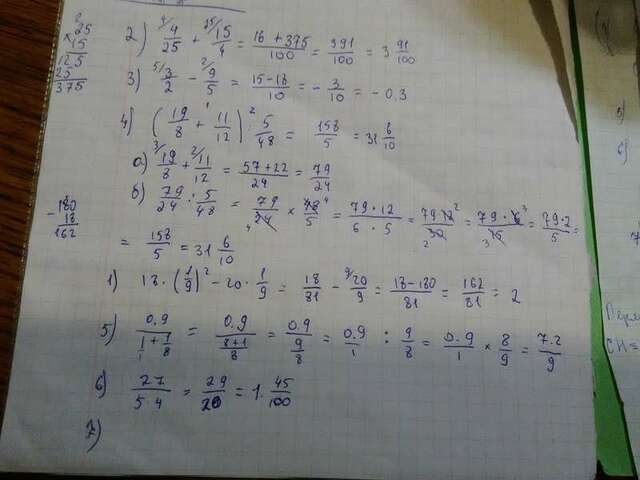 25
× 15
125
25
375
2) 4/ 4/25 + 25/ 15/4 = (16 + 375)/100 = 391/100 = 3 91/100
3) 5/ 3/2 - 2/ 9/5 = (15-18)/10 = - 3/10 = - 0.3
4) (19/8 + 11/12) : 5/48 = 158/5 = 31 6/10
а) 3/ 19/8 + 2/ 11/12 = (57+22)/24 = 79/24
б) 79/24 : 5/48 = 79/24 × 48/5 = (79 · 12)/(6 · 5) = (79 · 12)/30 = (79 · 6)/15 = (79 · 2)/5 =
= 158/5 = 31 6/10
- 180
18
162
1) 18 · (1/9)² - 20 · 1/9 = 18/81 - 9/ 20/9 = (18-180)/81 = 162/81 = 2
5) 0.9/(1 + 1/8) = 0.9/((8+1)/8) = 0.9/(9/8) = 0.9/1 : 9/8 = 0.9/1 × 8/9 = 7.2/9
6) 27/(5·4) = 29/20 = 1. 45/100
7)
5)
6)
7
Пере
CH =